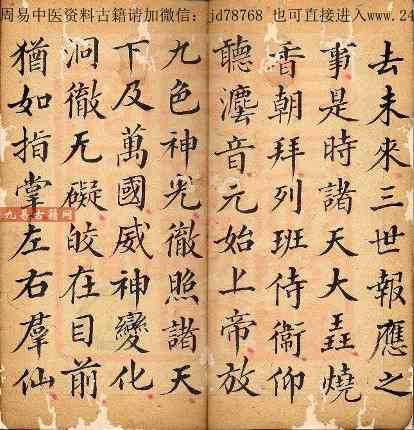 周易中医资料古籍请加微信：jd78768 也可直接进入www.24
去未來三世報應之
事是時諸天大𠱾燒
香朝拜列班侍衞仰
聽灋音元始上帝放
九色神光徹照諸天
下及萬國威神變化
洞徹无礙皎在目前
猶如指掌左右羣仙
九易古籍网